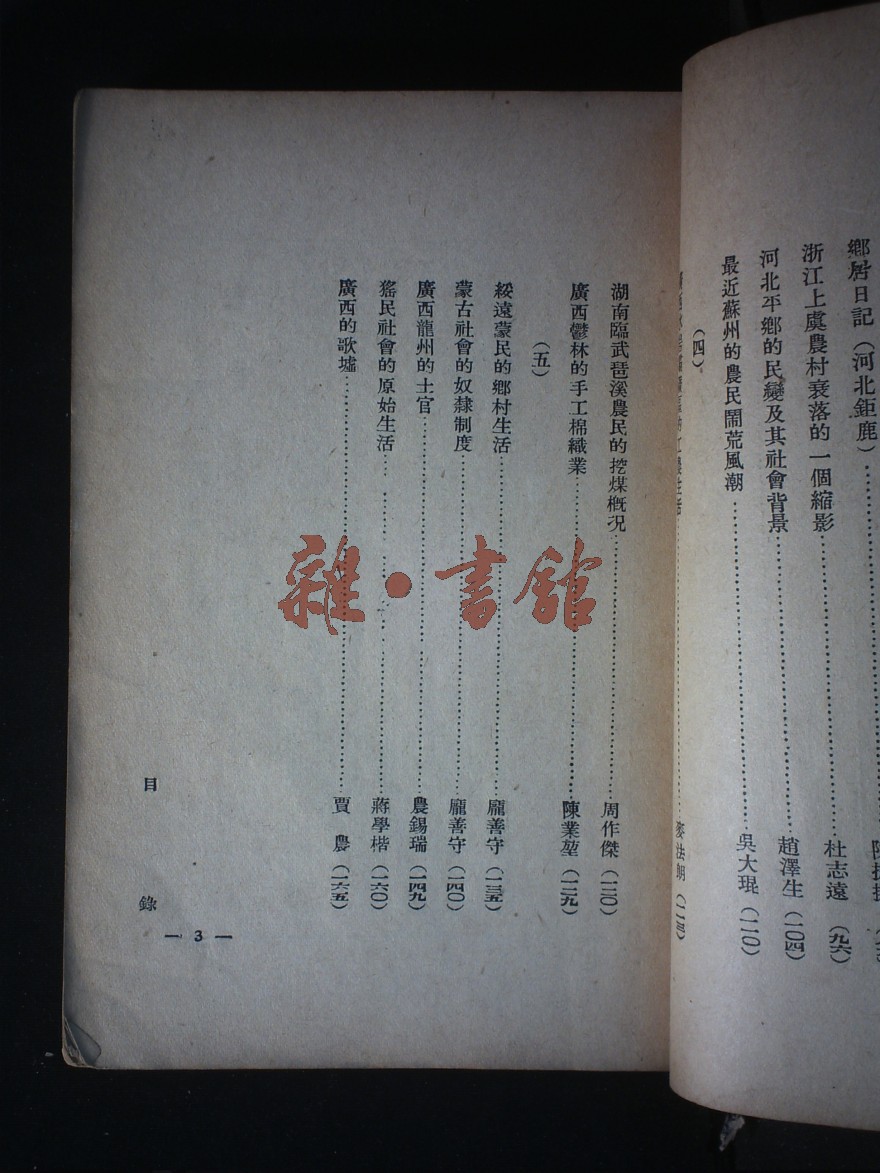 鄉居日記（河北鉅鹿）
浙江上虞農村衰落的一個縮影……杜志遠（九六）
河北平鄉的民變及其社會背景……趙澤生（一〇四）
最近蘇州的農民鬧荒風潮……吳大琨（一一〇）
（四）
湖南臨武琶溪農民的挖煤概况……周作傑（一二〇）
廣西鬱林的手工棉織業……陳業堃（一二九）
（五）
綏遠蒙民的鄉村生活……龐善守（一三五）
蒙古社會的奴隸制度……龐善守（一四〇）
廣西龍州的土官……農錫瑞（一四九）
猺民社會的原始生活……蔣學楷（一六〇）
廣西的歌墟……賈農（一六五）
目錄
— 3 —
雜·書館